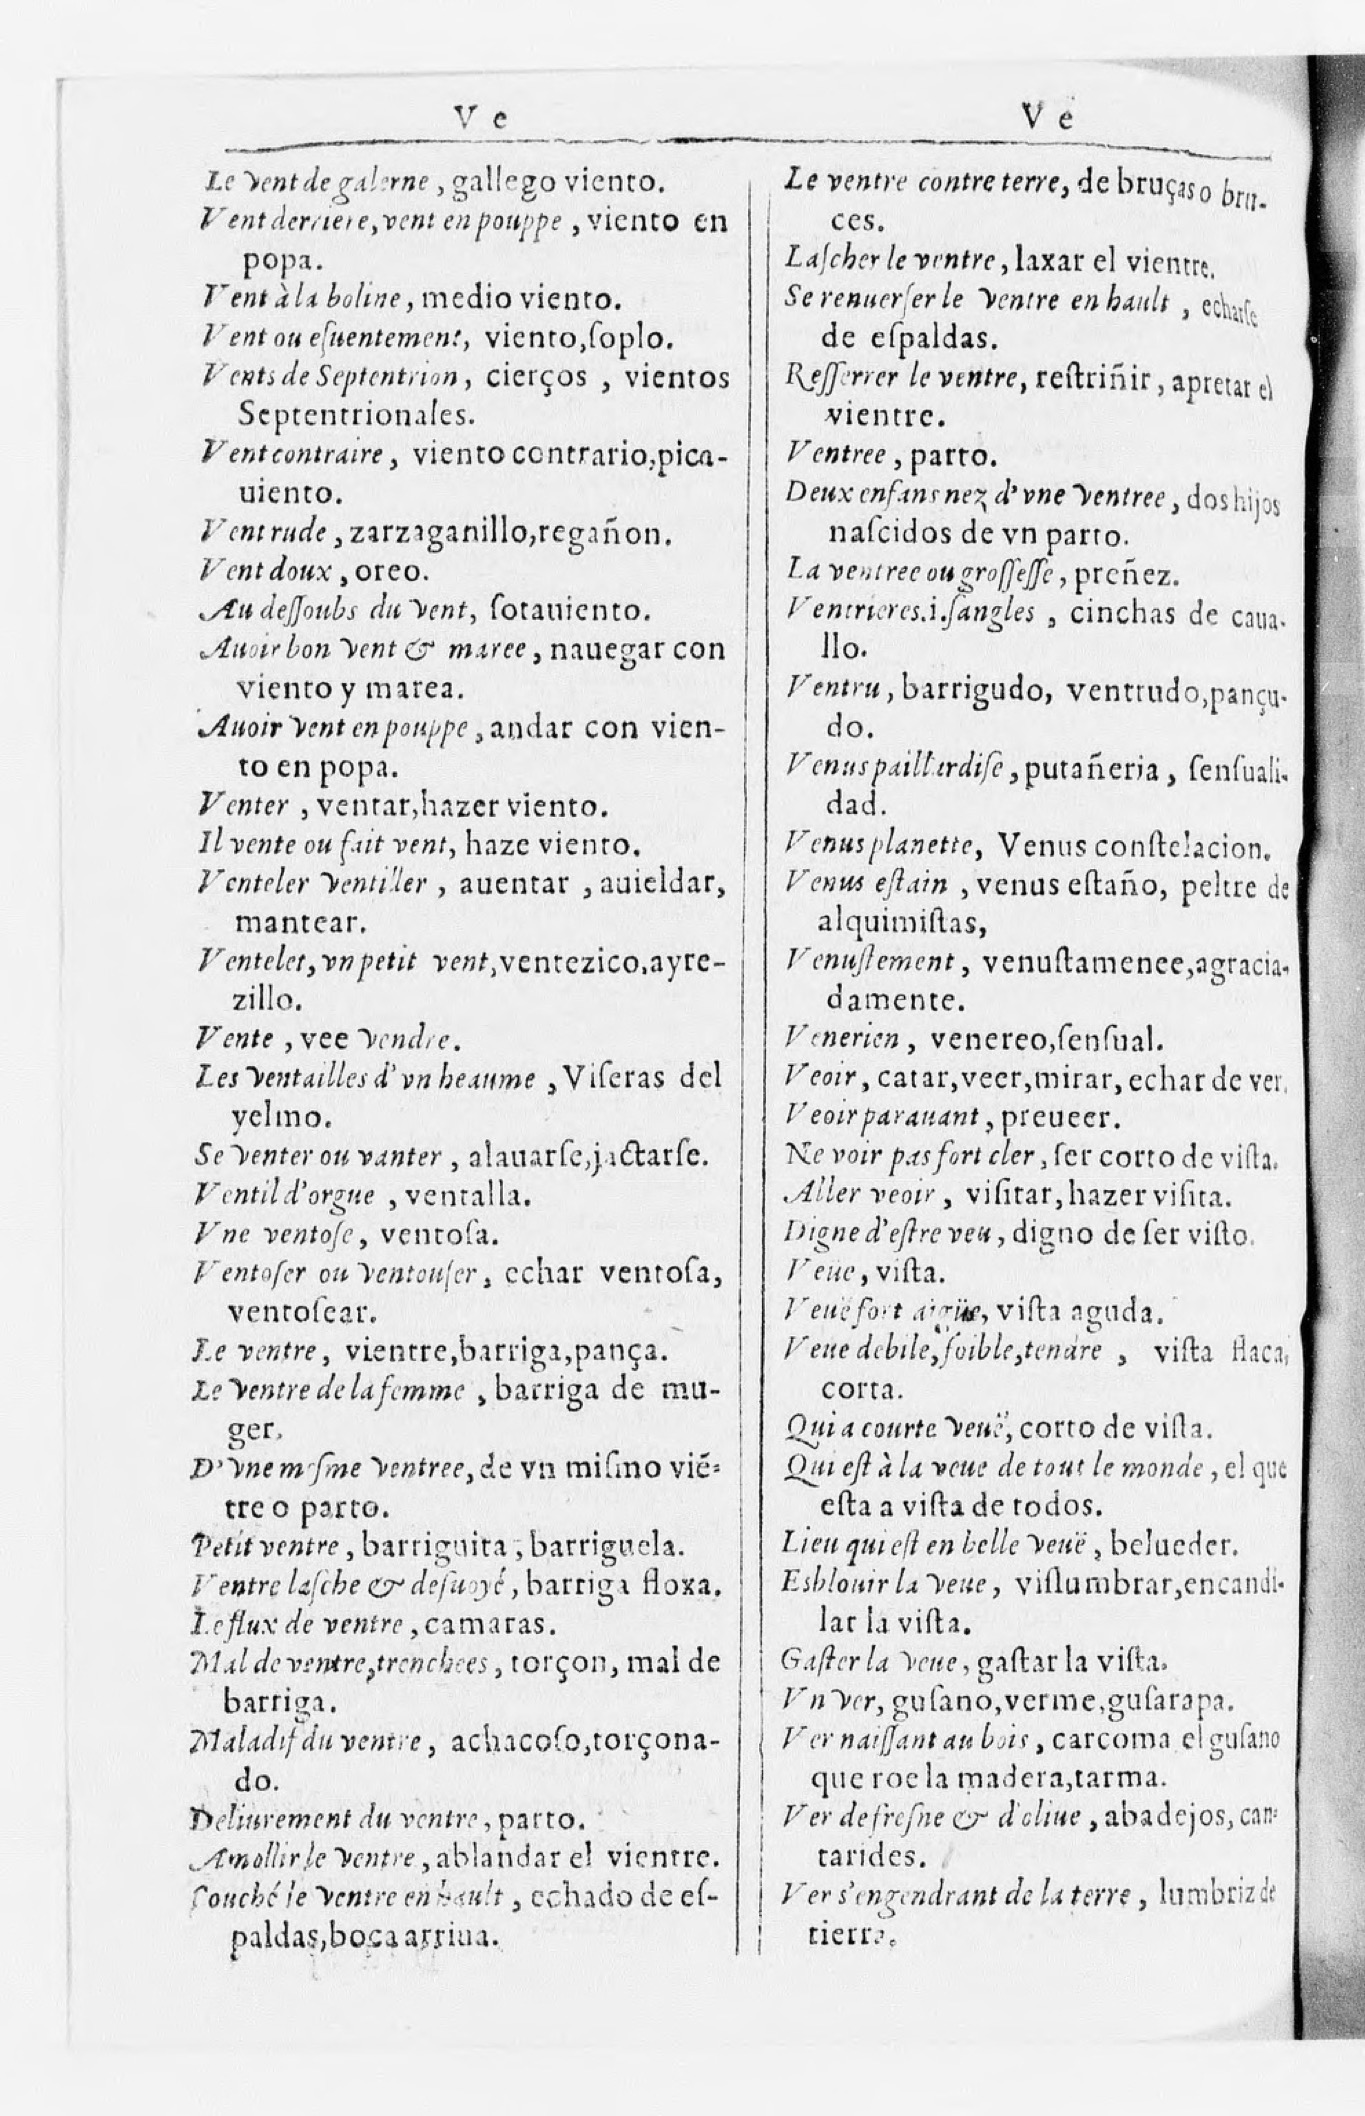 V e
Le vent de galerne, gallego viento.
Vent derriere, vent en pouppe, viento en
popa.
Vent à la boline, medio viento.
Vent ou esuentement, viento, ſoplo.
Vents de Septentrion, cierços, vientos
Septentrionales.
Vent contraire, viento contrario, pica-
uiento.
Vent rude, zarzaganillo, regañon.
Vent doux, oreo.
Au deſſoubs du vent, ſotauiento.
Auoir bon vent & maree, nauegar con
viento y marea.
Auoir vent en pouppe, andar con vien-
to en popa.
Venter, ventar, hazer viento.
Il vente ou fait vent, haze viento.
Venteler ventiller, auentar, auieldar,
mantear.
Ventelet, vn petit vent, ventezico, ayre-
zillo.
Vente, vee vendre.
Les ventailles d'vn heaume, Viſeras del
yelmo.
Se venter ou vanter, alauarſe, jactarſe.
Ventil d'orgue, ventalla.
Vne ventoſe, ventoſa.
Ventoſer ou ventouſer, echar ventoſa,
ventoſear.
Le ventre, vientre, barriga, pança.
Le ventre de la femme, barriga de mu-
ger.
D'vne meſme ventree, de vn miſmo viẽ-
tre o parto.
Petit ventre, barriguita, barriguela.
Ventre laſche & deſuoyé, barriga floxa.
Le flux de ventre, camaras.
Mal de ventre, trenchees, torçon, mal de
barriga.
Maladif du ventre, achacoſo, torçona-
do.
Deliurement du ventre, parto.
Amollir le ventre, ablandar el vientre.
Couché le ventre en hault, echado de eſ-
paldas, boca arriua.
V e
Le ventre contre terre, de bruças o bru-
ces.
Laſcher le ventre, laxar el vientre.
Se renuerſer le ventre en hault, echarſe
de eſpaldas.
Reſſerrer le ventre, reſtriñir, apretar el
vientre.
Ventree, parto.
Deux enfans nez d'vne ventree, dos hijos
naſcidos de vn parto.
La ventree ou groſſeſſe, preñez.
Ventrieres.i.ſangles, cinchas de caua-
llo.
Ventru, barrigudo, ventrudo, pançu-
do.
Venus paillardiſe, putañeria, ſenſuali-
dad.
Venus planette, Venus conſtelacion.
Venus eſtain, venus eſtaño, peltre de
alquimiſtas,
Venuſtement, venuſtamenee, agracia-
damente.
Venerien, venereo, ſenſual.
Veoir, catar, veer, mirar, echar de ver.
Veoir parauant, preueer.
Ne voir pas fort cler, ſer corto de viſta.
Aller veoir, viſitar, hazer viſita.
Digne d'eſtre veu, digno de ſer viſto.
Veüe, viſta.
Veuë fort aigüe, viſta aguda.
Veue debile, foible, tendre, viſta flaca,
corta.
Qui a courte veuë, corto de viſta.
Qui eſt à la veue de tout le monde, el que
eſta a viſta de todos.
Lieu qui eſt en belle veuë, belueder.
Esblouir la veue, viſlumbrar, encandi-
lar la viſta.
Gaſter la veue, gaſtar la viſta.
Vn ver, guſano, verme, guſarapa.
Ver naiſſant au bois, carcoma el guſano
que roe la madera, tarma.
Ver de freſne & d'oliue, abadejos, can-
tarides.
Ver s'engendrant de la terre, lumbriz de
tierra.